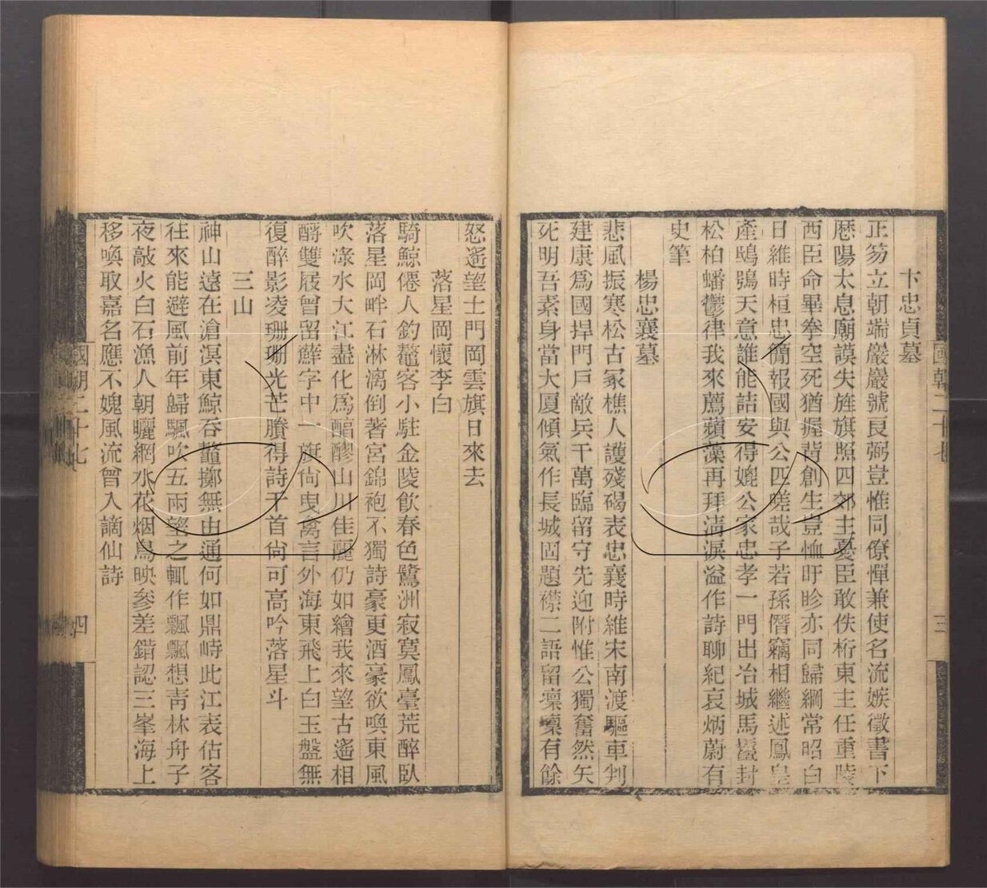 卞忠貞墓
正笏立朝端嚴嚴號良弼豈惟同僚憚兼使名流嫉徵書下
歷陽太息廟謨失旌旗照四郊主憂臣敢佚桁東主任重陵
西臣命畢拳空死猶握背創生豈恤盱眕亦同歸綱常昭白
日維時桓忠簡報國與公匹嗟哉子若孫僭竊相繼述鳳皇
產鴟鴞天意誰能詰安得媲公家忠孝一門出冶城馬鬣封
松柏蟠鬱律我來薦蘋藻再拜淸淚溢作詩聊紀哀炳蔚有
史筆
楊忠襄墓
悲風振寒松古冢樵人護殘碣表忠襄時維宋南渡驅車判
建康爲國捍門戶敵兵千萬臨留守先迎附惟公獨奮然矢
死明吾素身當大厦傾氣作長城固題襟二語留凜凜有餘
國朝二十七
三
怒遙望土門岡雲旗日來去
落星岡懷李白
騎鯨僊人釣鼇客小駐金陵飮春色鷺洲寂寞鳳臺荒醉臥
落星岡畔石淋漓倒著宮錦袍不獨詩豪更酒豪欲喚東風
吹淥水大江盡化爲醅醪山川佳麗仍如繪我來望古遙相
酹雙屐曾留蘚字中一旗尙曳禽言外海東飛上白玉盤無
復醉影凌珊珊光芒賸得詩千首尙可高吟落星斗
三山
神山遠在滄溟東鯨吞鼇擲無由通何如鼎峙此江表估客
往來能避風前年歸颿吹五兩望之輒作飄飄想靑林舟子
夜敲火白石漁人朝曬網水花烟鳥映參差錯認三峯海上
移喚取嘉名應不媿風流曾入謫仙詩
國朝二十七
四